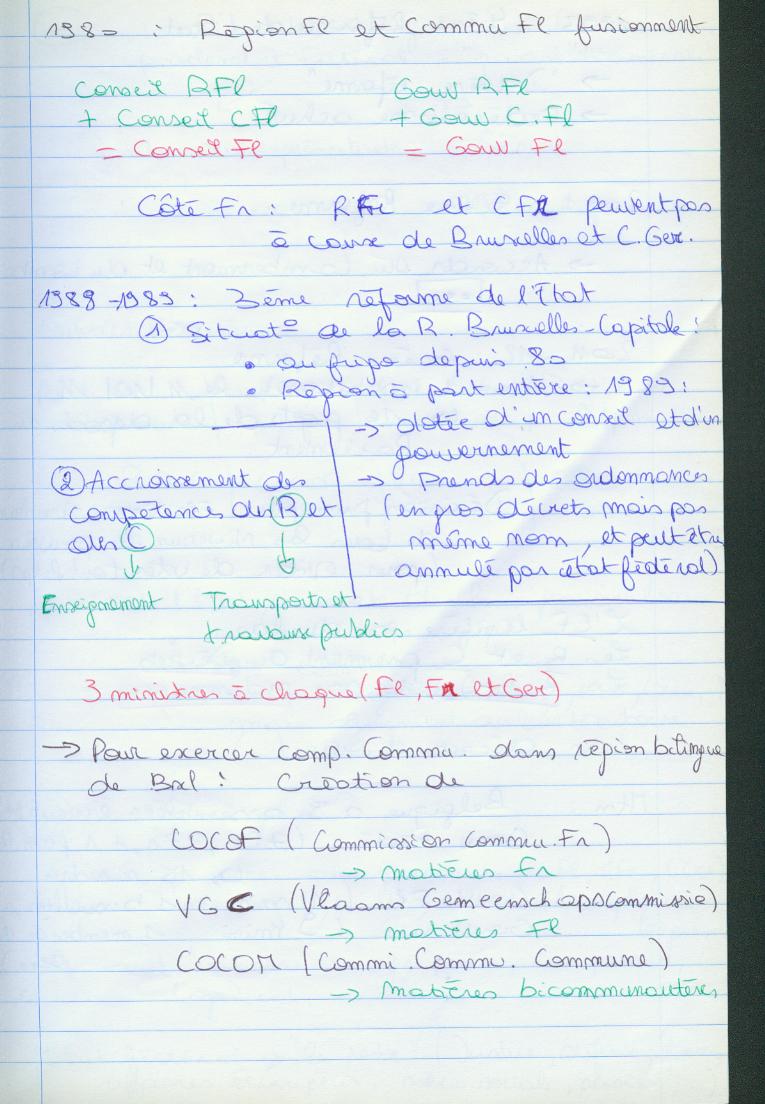 1980 : Région Fl et Commu Fl fusionnent
Conseil RFl Gouv RFl
+ Conseil CFl + Gouv C.Fl
= Conseil Fl = Gouv Fl
Côté Fr : RFr et CFR peuvent pas
à cause de Bruxelles et C. Ger.
1988-1989 : 3ème réforme de l'État
① Situatº de la R. Bruxelles-Capitale :
• au frigo depuis 80
• Région à part entière : 1989 :
→ dotée d'un Conseil et d'un
gouvernement
→ Prends des ordonnances
(en gros décrets mais pas
même nom, et peut être
annulé par état fédéral)
② Accroissement des
compétences des R et
des C
↓ ↓
Enseignement Transports et
travaux publics
3 ministres à chaque (Fl, FR et Ger)
→ Pour exercer comp. Commu. dans région bilingue
de Bxl : Création de
COCOF (Commission Commu. Fr)
→ matières Fr
VGC (Vlaams Gemeenschapscommissie)
→ matières Fl
COCOM (Commi. Commu. Commune)
→ Matières bicommunautères